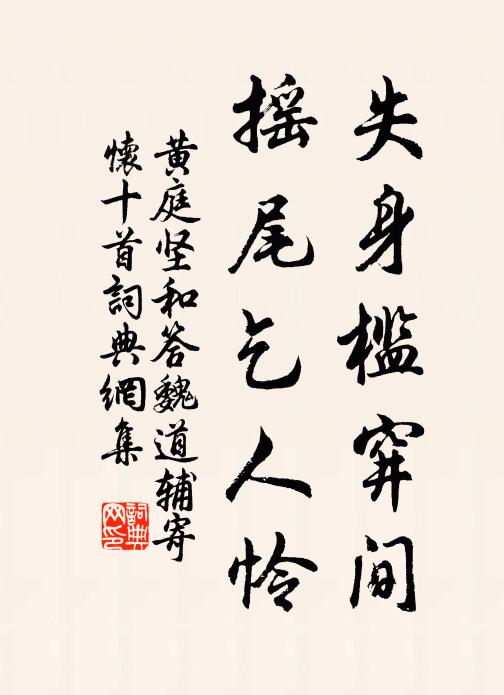 失身槛穽间
摇尾乞人怜
黄庭坚和答魏道辅寄
懐十首词典網集
詞典网印